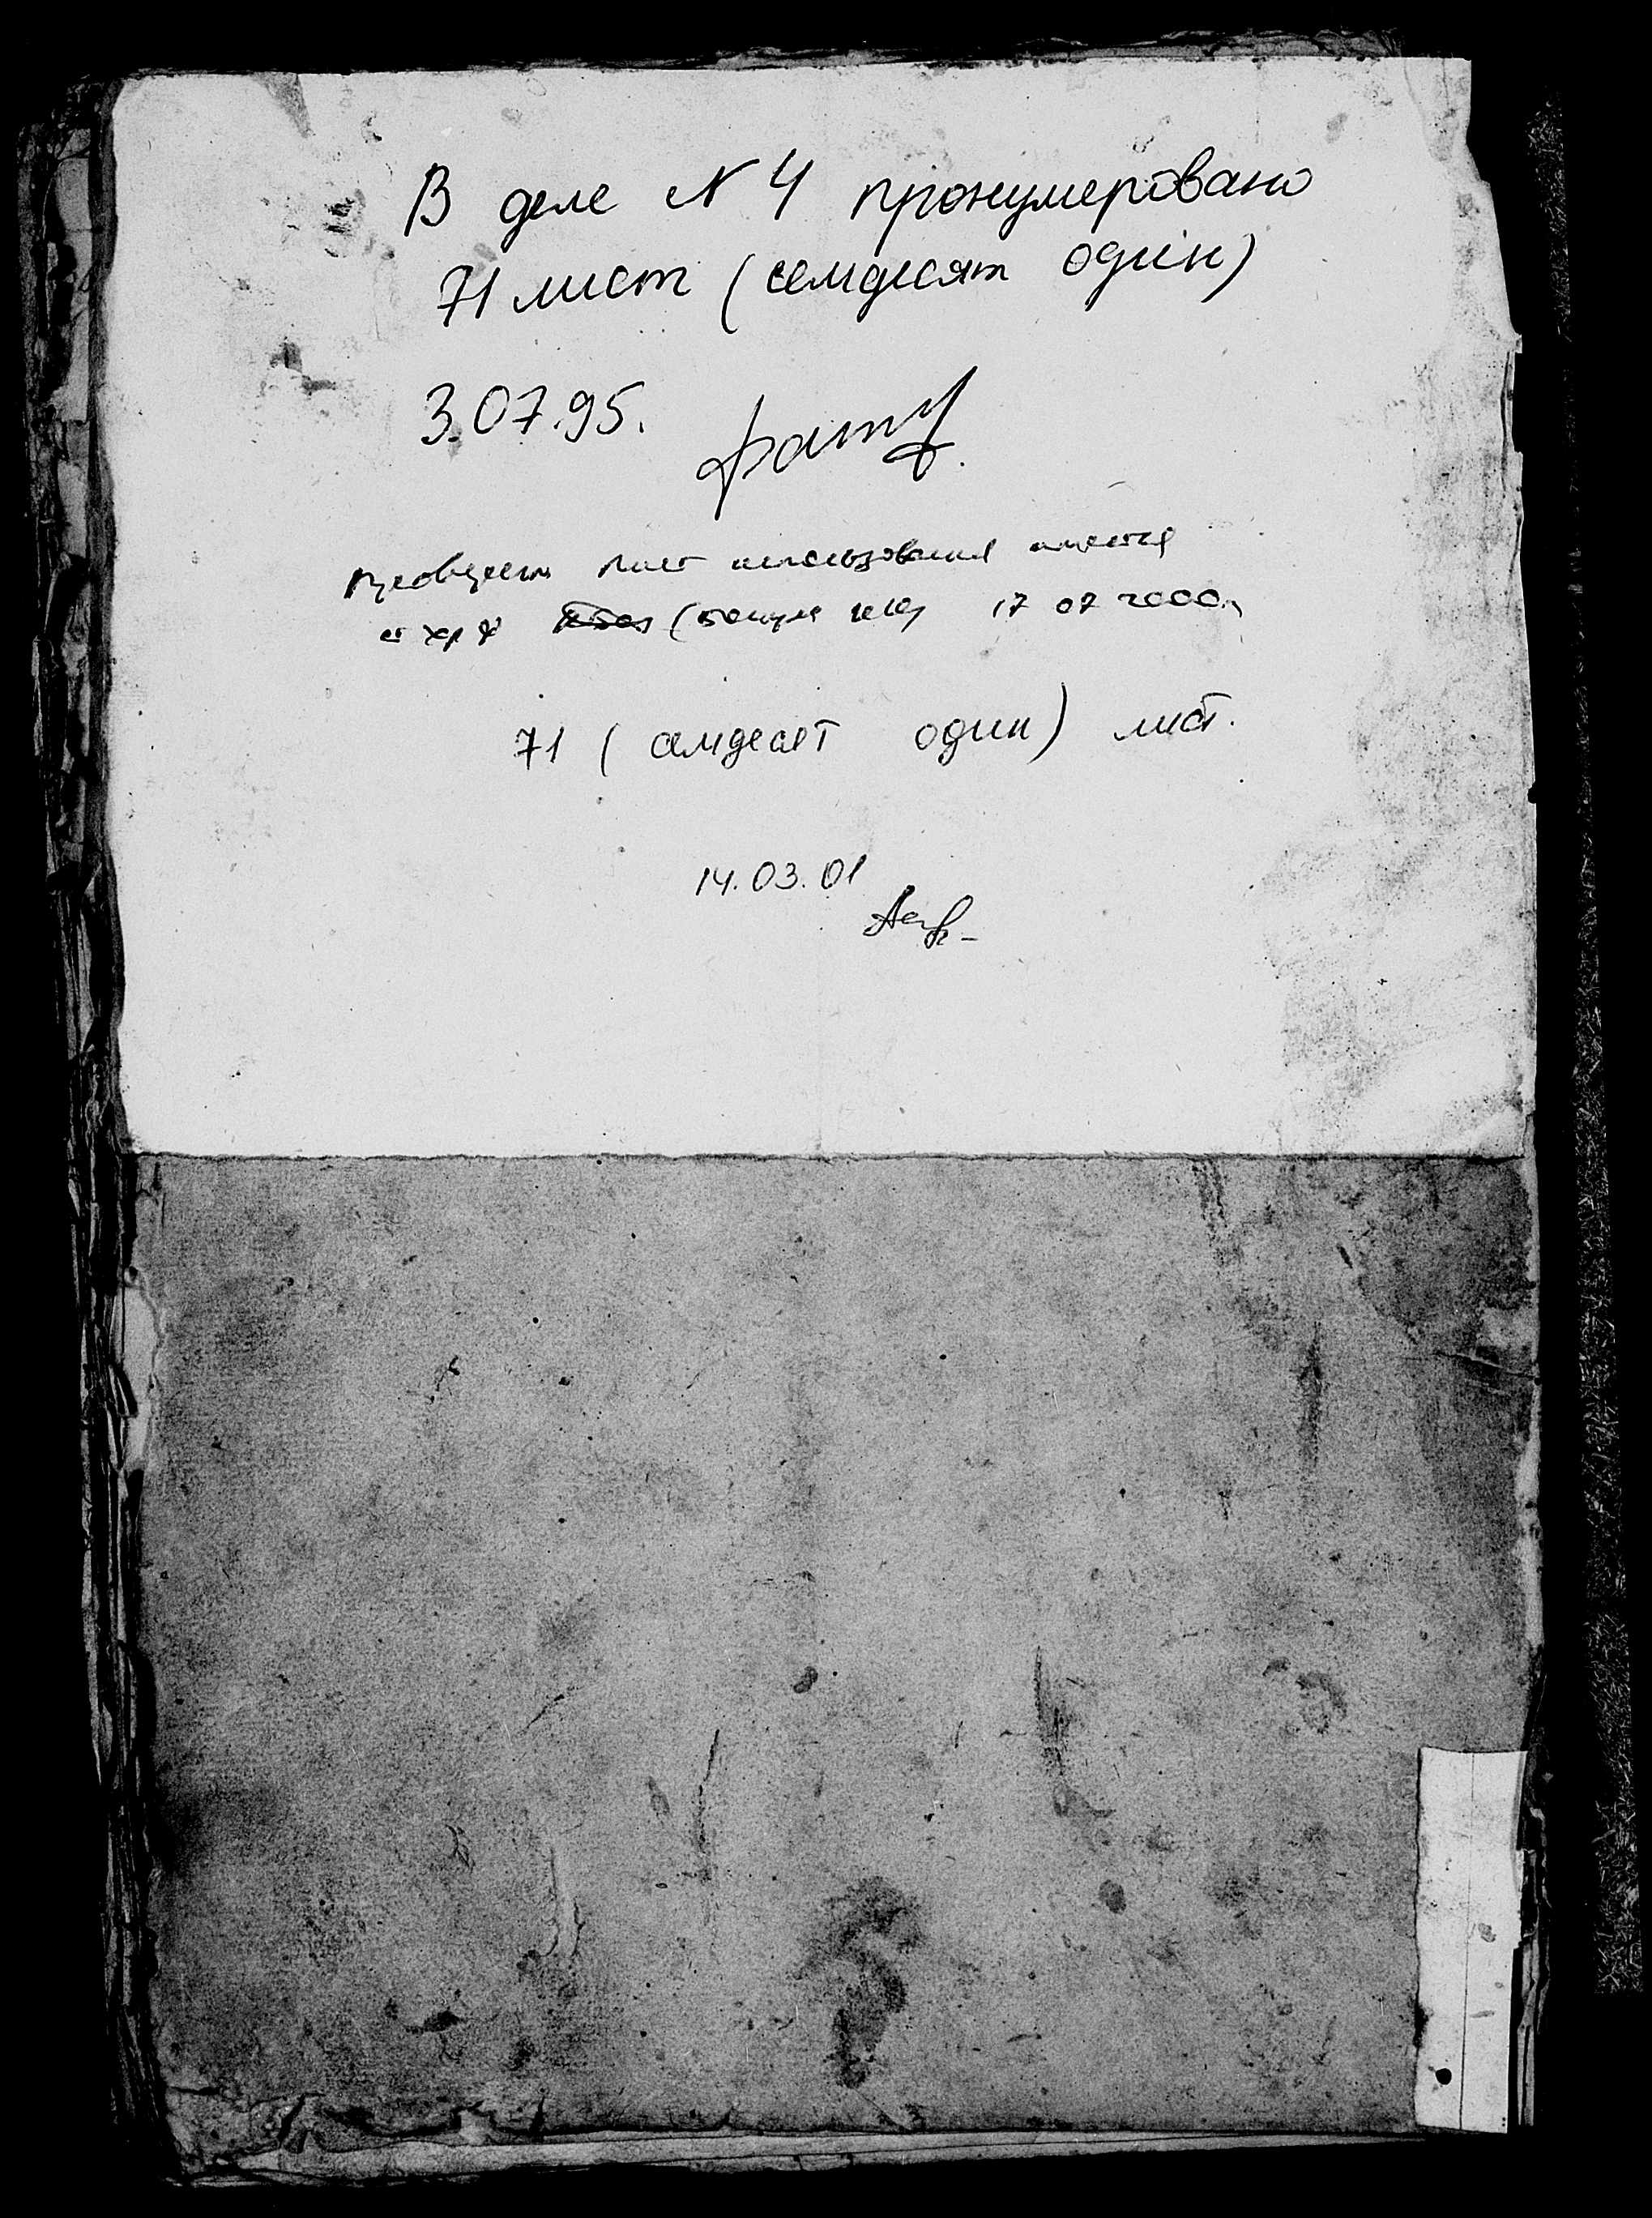 В деле № 4 пронумеровано
71 лист (семдесят один)
3.07.95.
лист использования имеется
17 07 2000
71 (семдесят один) лист.
14.03.01